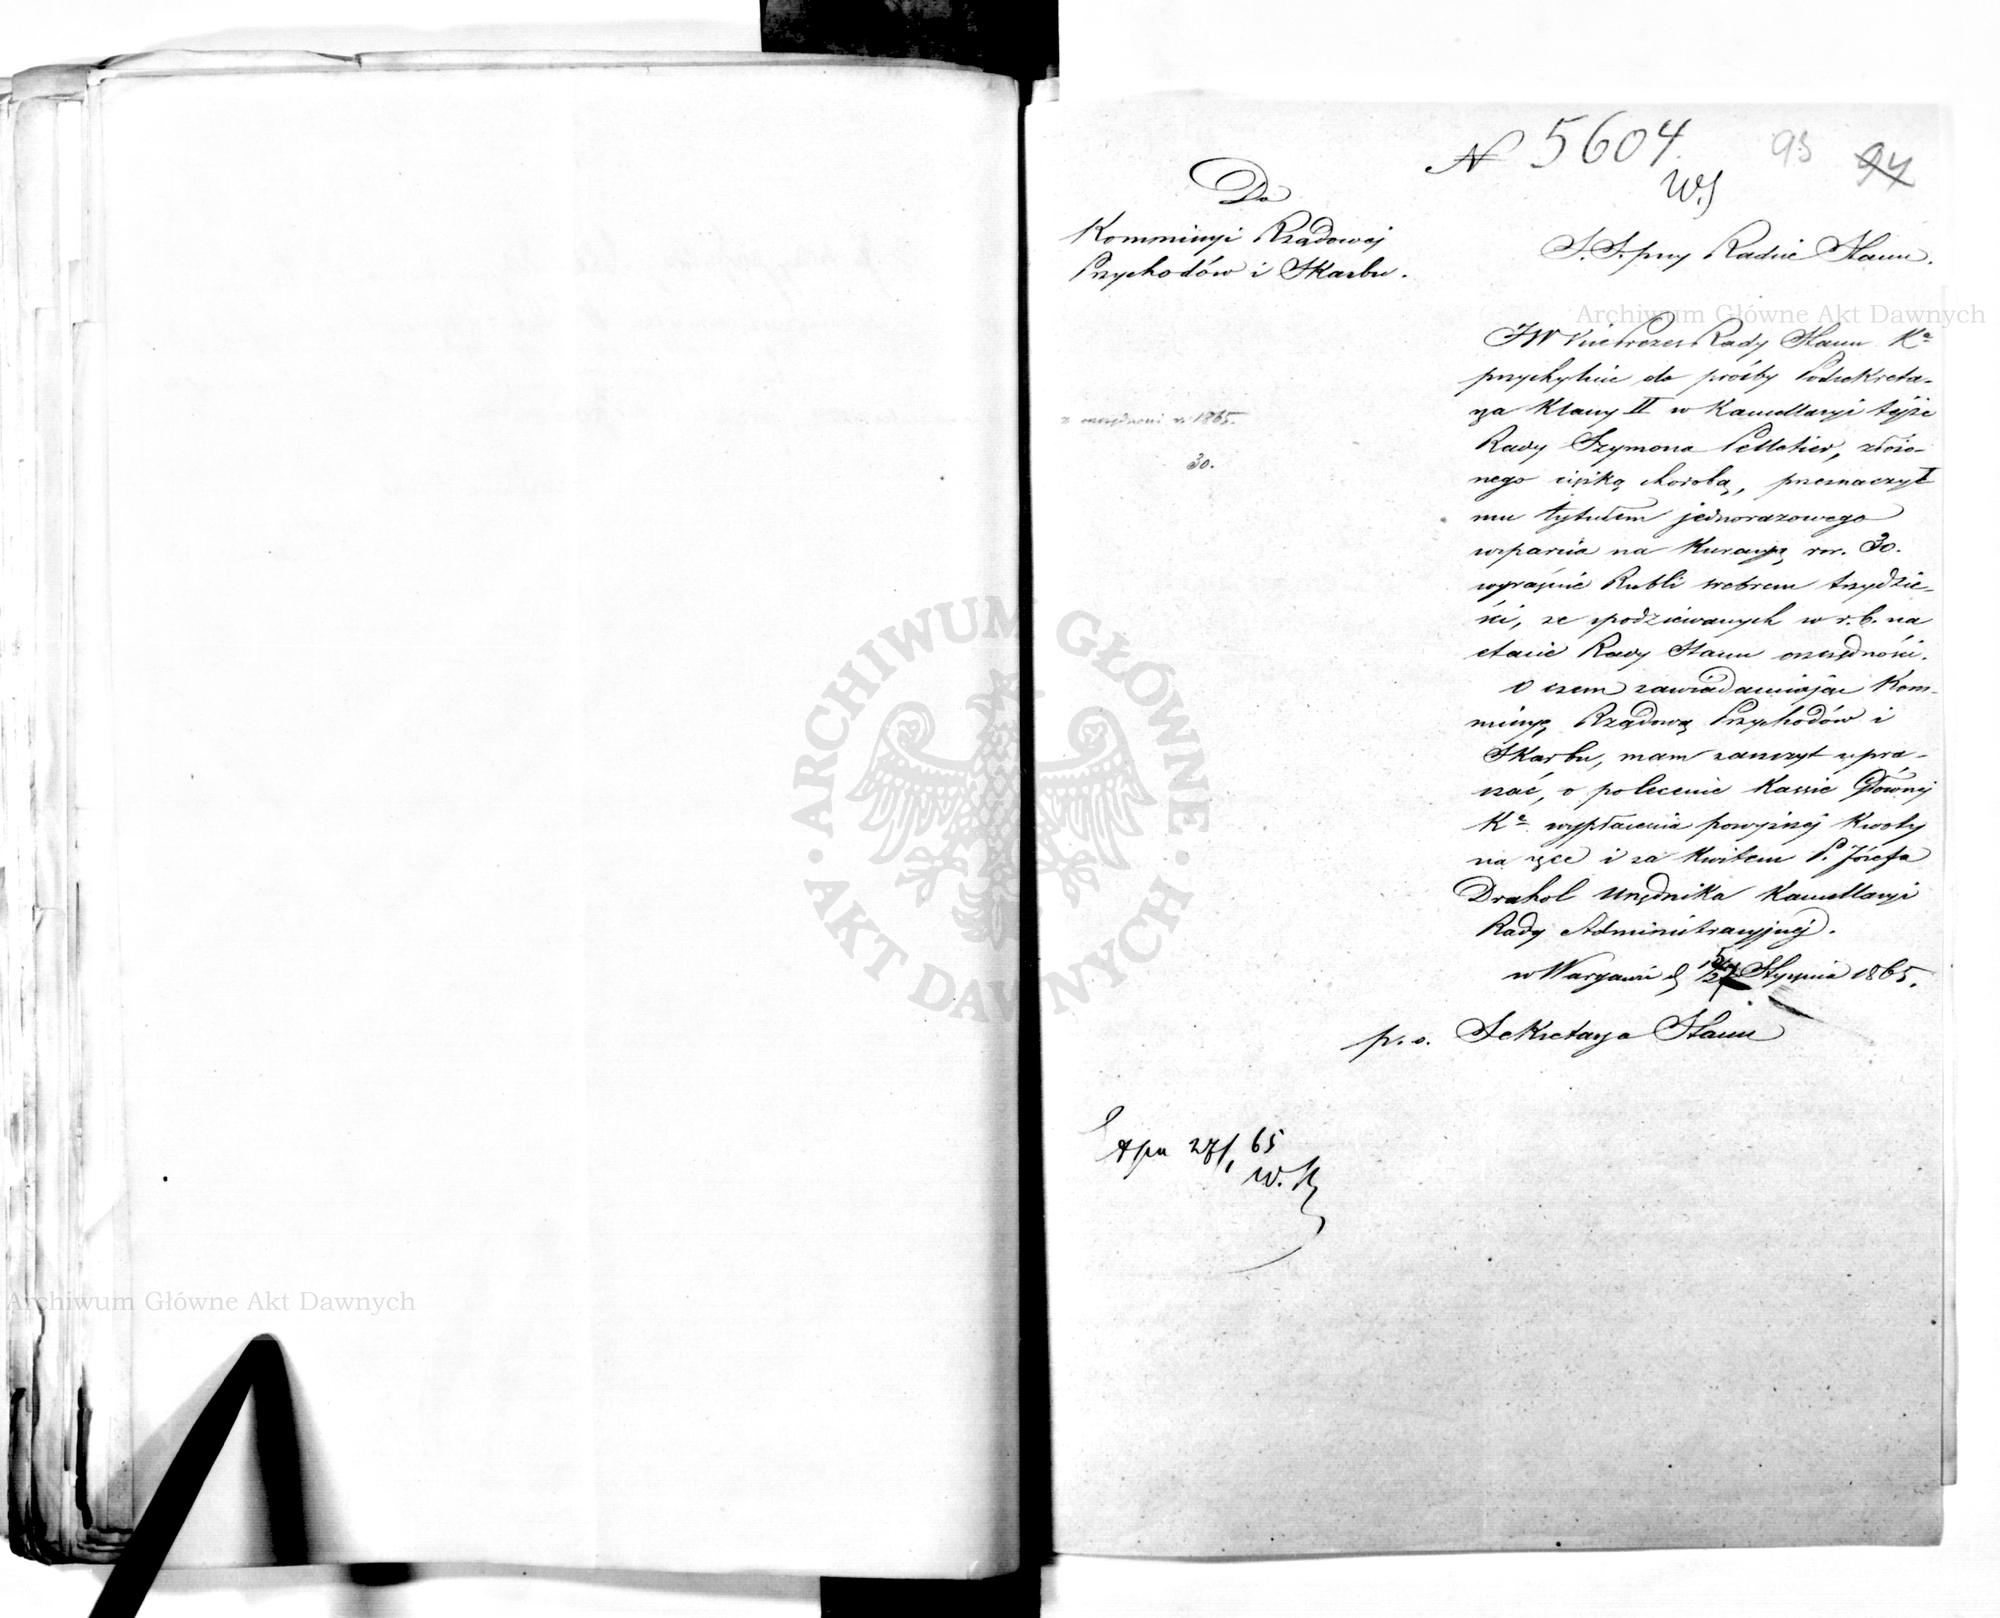 N 5604
W.S
93 94
Do
Kommissyi Rządowej
Przychodów i Skarbu.
S. S. przy Radzie Stanu.
Archiwum Główne Akt Dawnych
JW VicePrezes Rady Stanu Kа
przychylnie do prośby Podsekreta-
rza Klassy II w Kancellaryi tejże
Rady Szymona Pelletier, złożo-
nego ciężką chorobą, przeznaczył
mu tytułem jednorazowego
wsparcia na Kuracyę rsr. 30.
wyraźnie Rubli srebrem trzydzie-
ści, ze spodziewanych w r. b. na
etacie Rady Stanu oszczędności.
O czem zawiadamiając Kom-
missyę Rządową Przychodów i
Skarbu, mam zaszczyt upra-
szać, o polecenie Kassie Głównej
Kа wypłacenia powyższej Kwoty
na ręce i za Kwitem P. Józefa
Drahol Urzędnika Kancellaryi
Rady Administracyjnej.
w Warszawie d. Stycznia 1865.
p. o. Sekretarza Stanu
z oszczędności r. 1865.
30.
27/1 65
ARCHIWUM GŁÓWNE
AKT DAWNYCH
Archiwum Główne Akt Dawnych